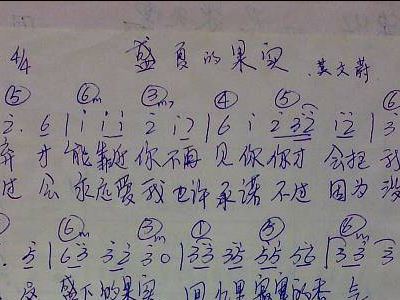 4/4 盛夏的果实 莫文蔚
⑤ ⑥m ③m7 ④ ⑤ ⑥
2. 6 | i i i 2 i 7 | 6 i 2 3 2 i 2 | 3
弃 才 能靠近你 不再 见你 你才 会把 我
过 会 永远爱我 也许承诺 不过 因为 没
⑥m ③m ① ⑤ ⑥m
5 | 6 3 3 2 3 0 | 3 3 3 5 5 5 5 6 | 3 3 3
盛下的果实 回忆里寂寞的香气